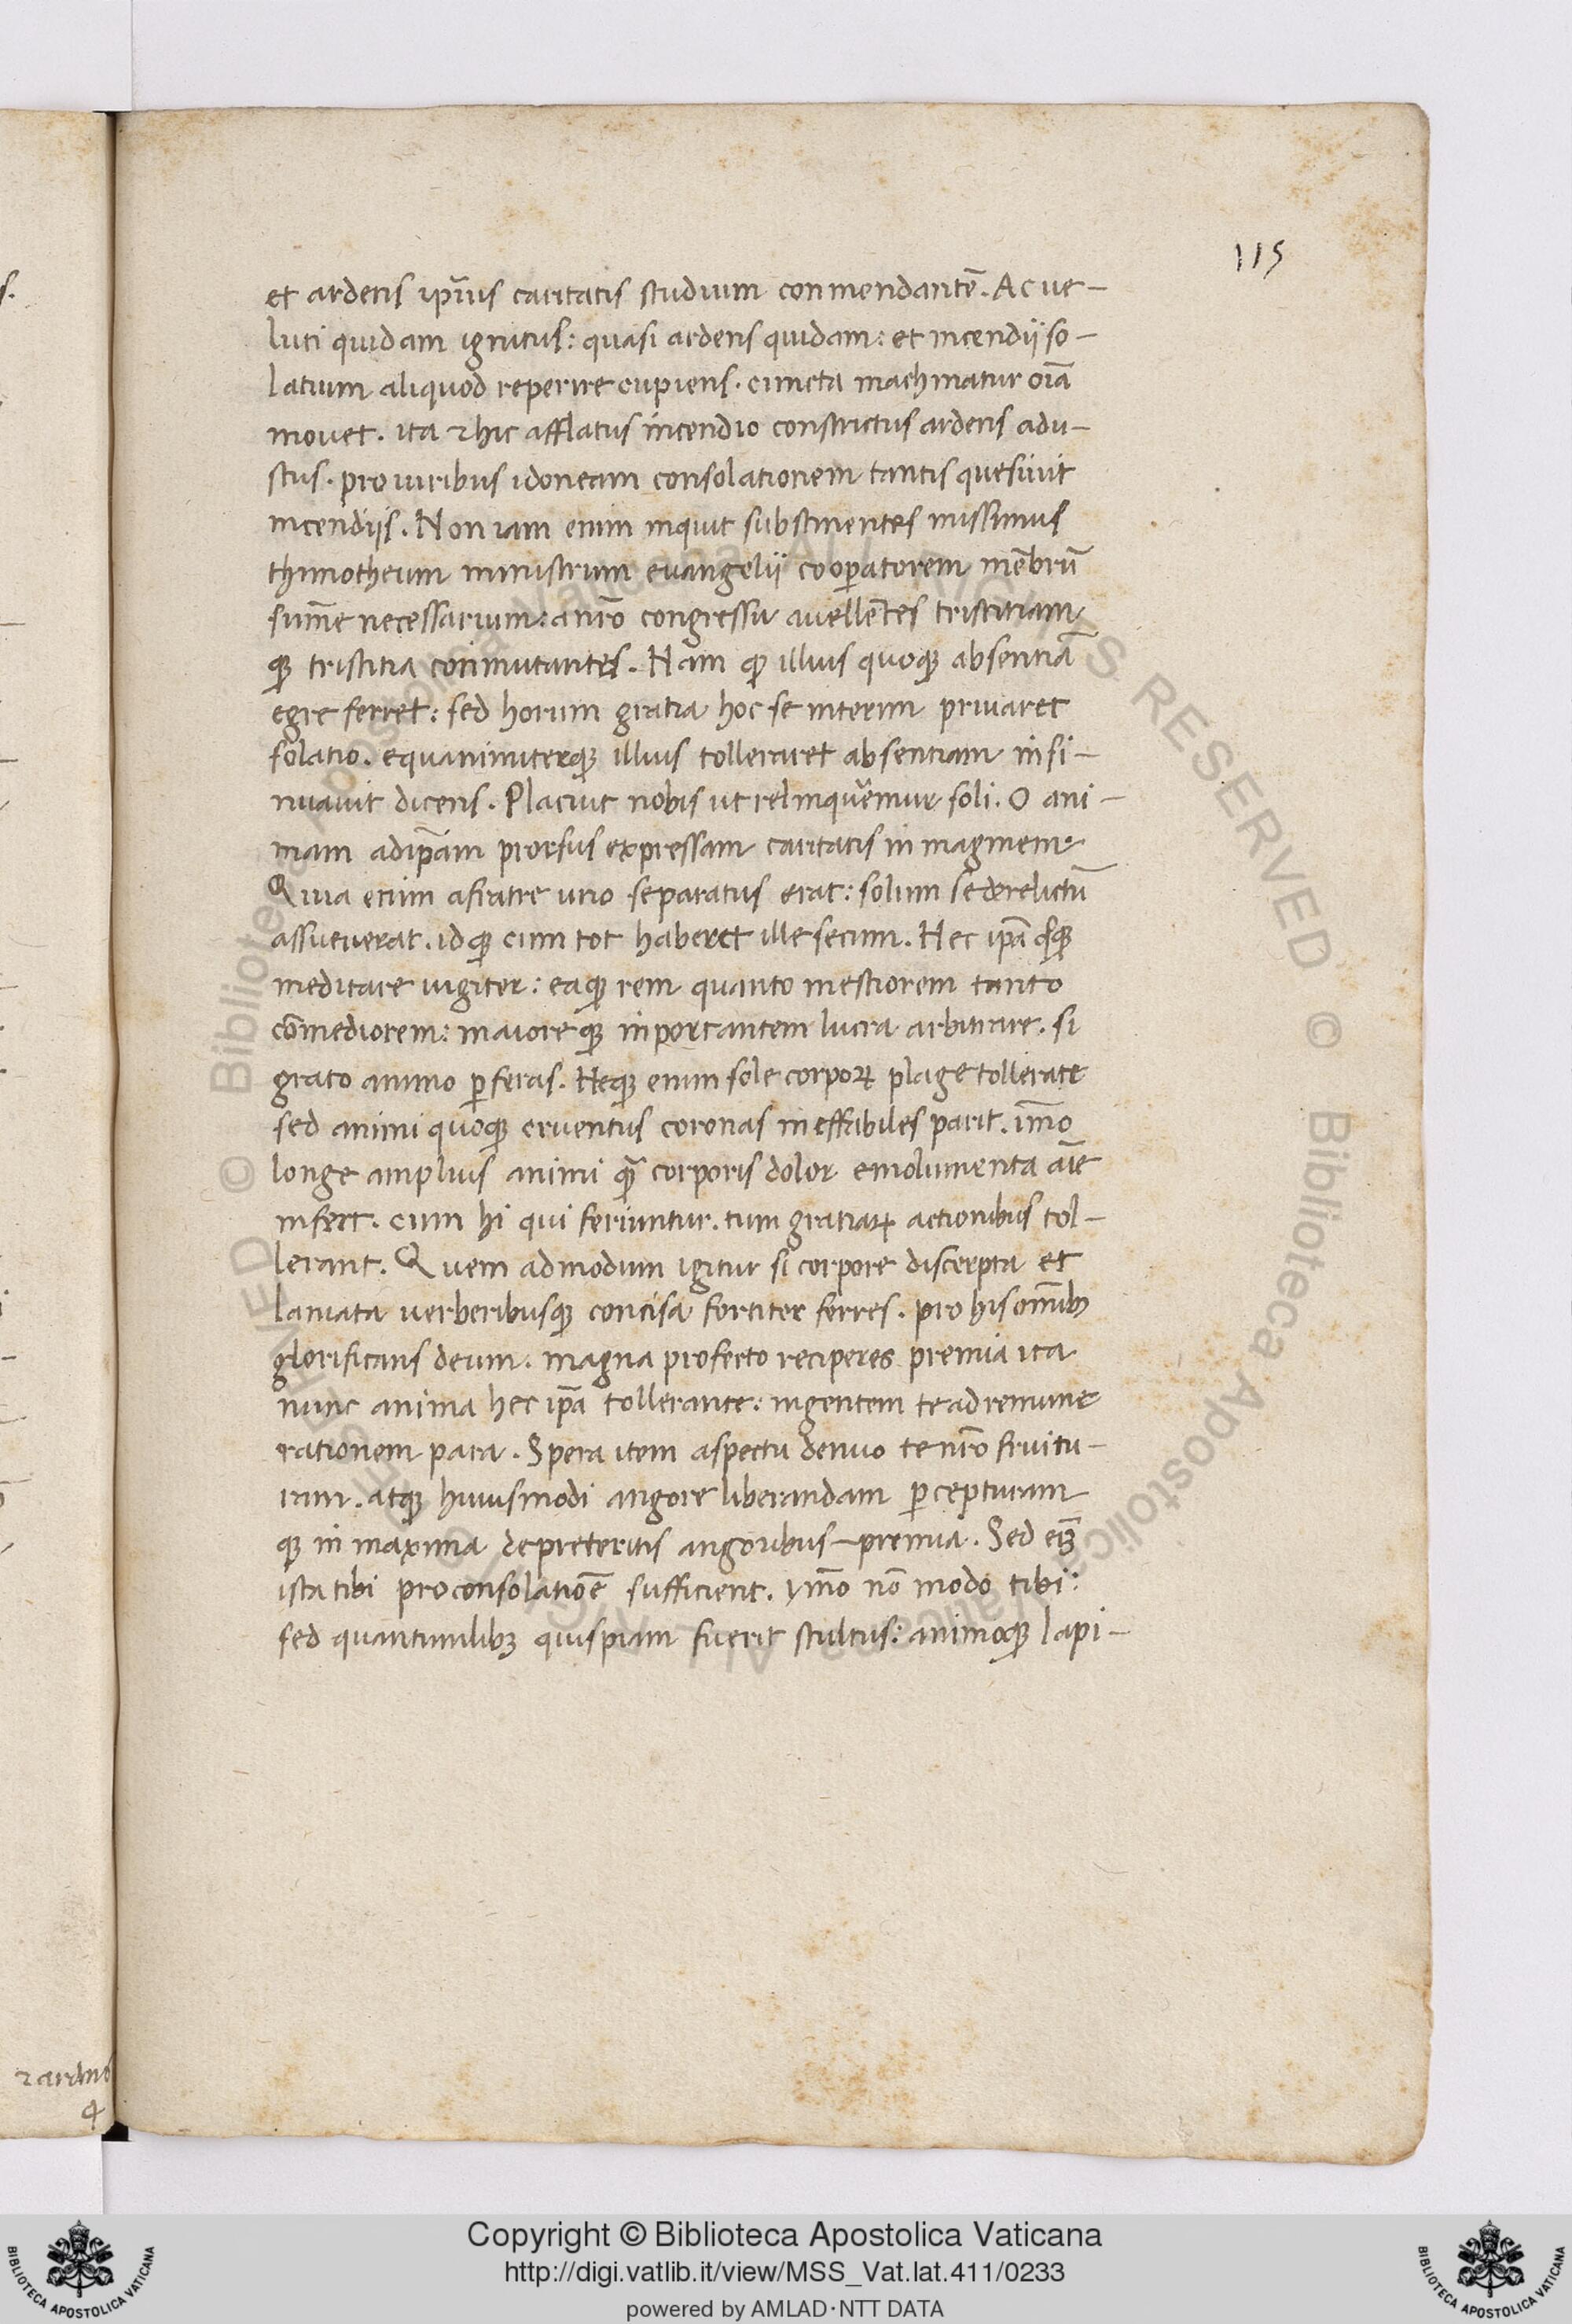 115
et ardens ipsius caritatis studium conmendantē. Ac ue-
luti quidam ignitus: quasi ardens quidam: et incendij so-
latium aliquod reperire cupiens. cuncta machinatur oīa
mouet. ita ⁊ hic afflatus incendio constrictus ardens adu-
stus. pro uiribus idoneam consolationem tantis quesiuit
incendijs. Non iam enim inquit substinentes missimus
thimotheum ministrum euangelij cooꝑatorem mēbrū
sum̄e necessarium: a nr̄o congressu auellētes tristitiam
qꝫ tristitia conmutantes. Nam ꝙ illius quoqꝫ absentiā
egre ferret: sed horum gratia hoc se interim priuaret
solatio. equanimiterqꝫ illius tolleraret absentiam insi-
nuauit dicens. Placuit nobis ut relinqueremur soli. O ani-
mam ad ip̄am prorsus expressam caritatis inmaginem
Quia enim a fratre uno separatus erat: solum se derelictū
assueuerat. idqꝫ cum tot haberet ille secum. Hec ip̄a
meditare iugiter: eaqꝫ rem quanto mestiorem tanto
com̄ediorem: maioreqꝫ inportantem lucra arbitrare. si
grato animo ꝑferas. Neqꝫ enim sole corpoꝝ plage tollerate
sed animi quoqꝫ cruentus coronas ineffabiles parit. im̄o
longe amplius animi quā corporis dolor emolumenta aīe
infert. cum hi qui feriuntur. cum gratiaꝝ actionibus tol-
lerant. Quem admodum igitur si corpore discerpta et
laniata uerberibusqꝫ concisa fortiter ferres. pro his omībꝫ
glorificans deum. magna profecto reciperes premia ita
nunc anima hec ip̄a tollerante: ingentem te ad remune
rationem para. Spera item aspectu denuo te nr̄o fruitu-
ram. atqꝫ huiusmodi angore liberandam ꝑcepturam
qꝫ in maxima de preteritis angoribus - premia. Sed
ista tibi pro consolatiōe sufficient. ym̄o nō modo tibi:
sed quantumlibꝫ quispiam fuerit stultus: animoqꝫ lapi-
s.
⁊ arduo
Copyright © Biblioteca Apostolica Vaticana
http://digi.vatlib.it/view/MSS_Vat.lat.411/0233
powered by AMLAD·NTT DATA
BIBLIOTECA APOSTOLICA VATICANA
BIBLIOTECA APOSTOLICA VATICANA
© Biblioteca Apostolica Vaticana ALL RIGHTS RESERVED
© Biblioteca Apostolica Vaticana ALL RIGHTS RESERVED